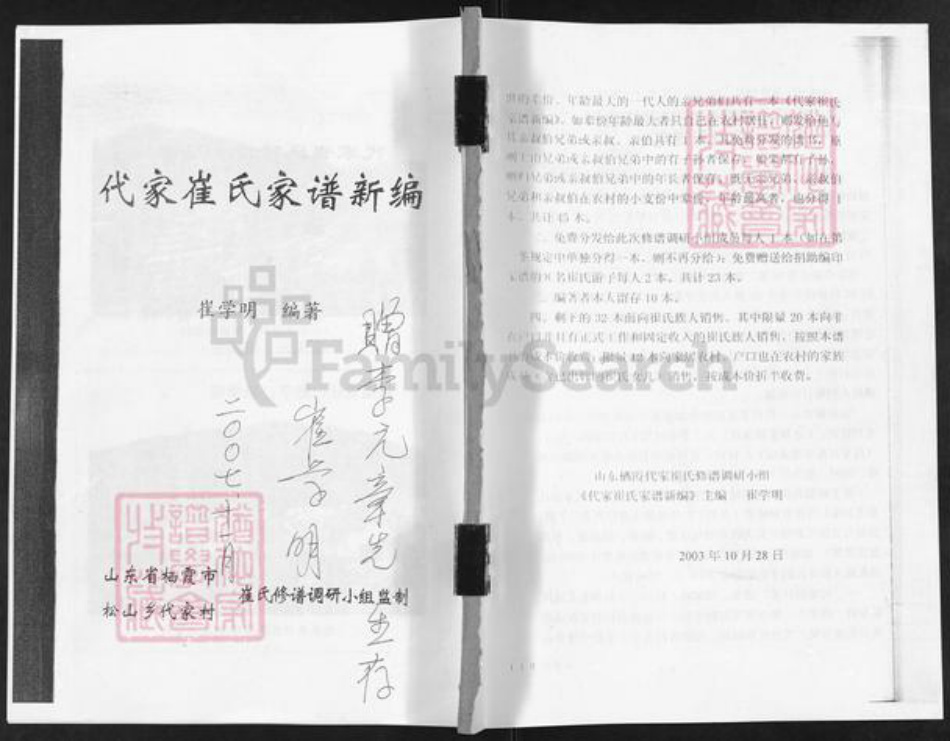 代家崔氏家谱新编
崔学明 编著
赠李元章先生存
崔学明
二〇〇七.十一月
山东省栖霞市
松山乡代家村
崔氏修谱调研小组监制
FamilySearch
年龄最大的一代人的亲兄弟们共有一本《代家崔氏
家谱新编》。如辈份年龄最大者只自己在农村居住,
其亲叔伯兄弟或亲叔、亲伯共有1本。其免费分发的谱书,原
则上由兄弟或亲叔伯兄弟中的有子孙者保存,如果都有子孙,
则归兄弟或亲叔伯兄弟中的年长者保存;既无亲兄弟、亲叔伯
兄弟和亲叔伯在农村的小支份中辈份、年龄最高者,也分得1
本。共计45本。
二、免费分发给此次修谱调研小组成员每人1本(如在第
一条规定中单独分得一本,则不再分给);免费赠送给捐助编印
名崔氏游子每人2本。共计23本。
三、编著者本人留存10本。
四、剩下的32本面向崔氏族人销售。其中限量20本向
有正式工作和固定收入的崔氏族人销售,按照本谱
成本价收费;限量12本向家居农村、户口也在农村的家族
销售,按成本价折半收费。
山东栖霞代家崔氏修谱调研小组
《代家崔氏家谱新编》主编 崔学明
2003年10月28日